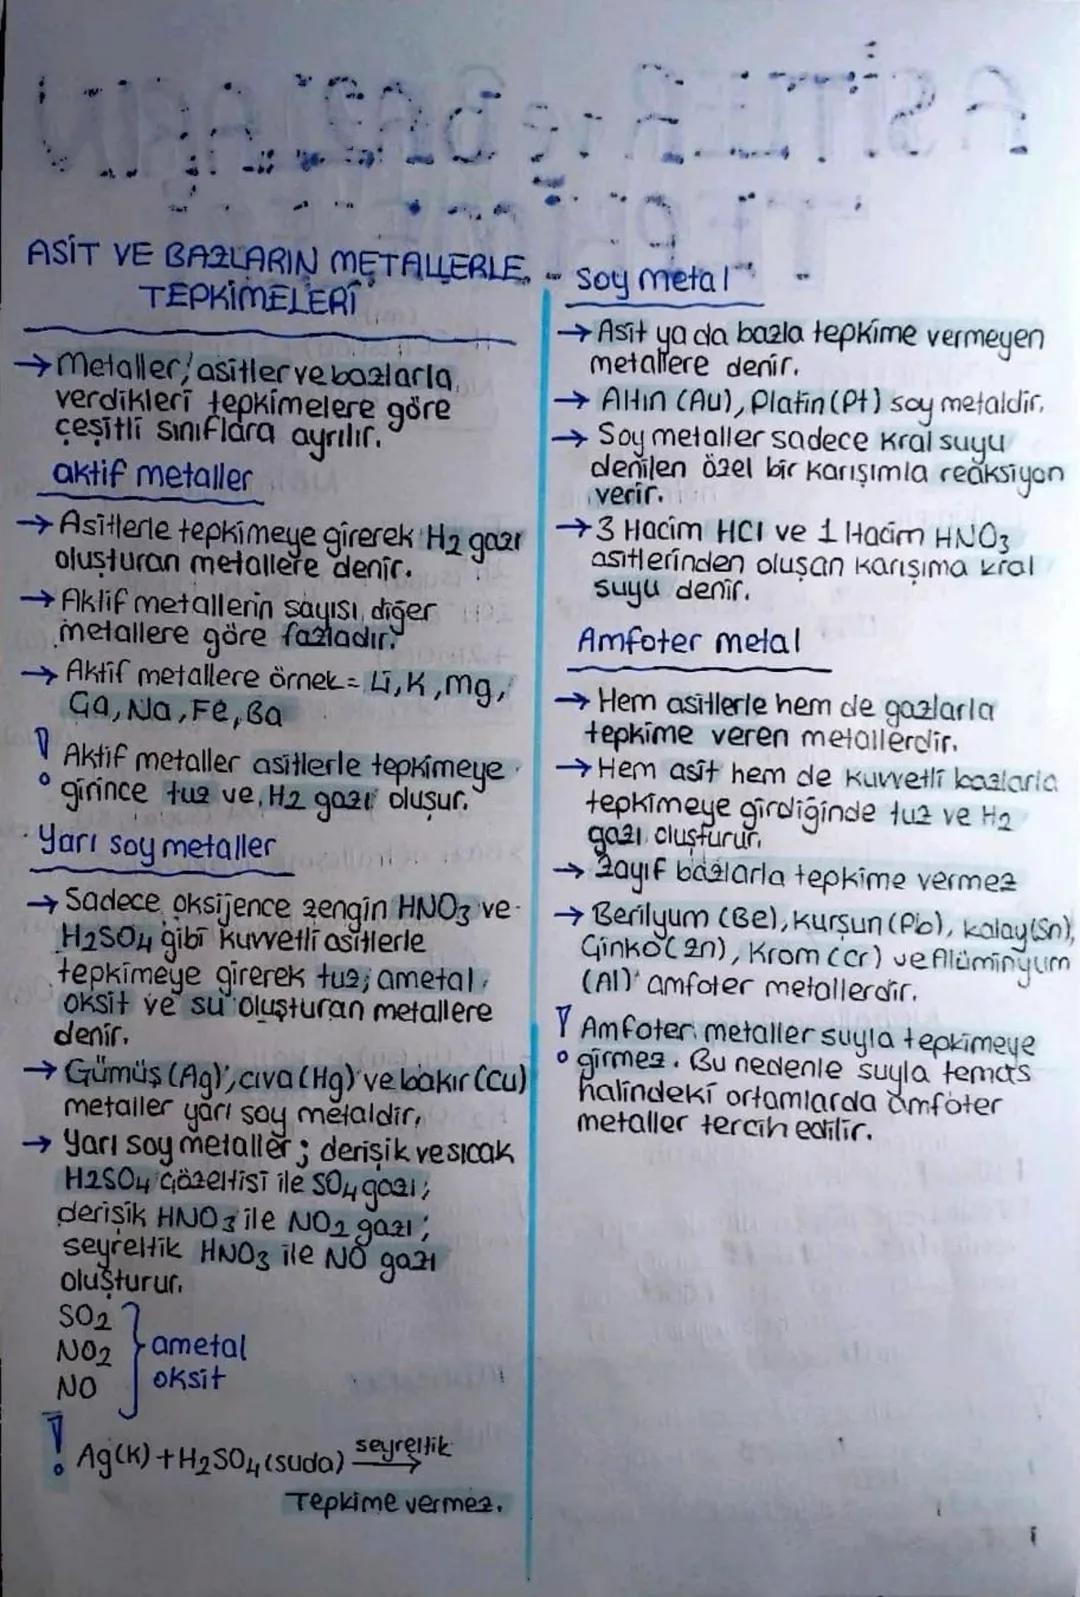 ASİT VE BAZLARIN METALLERLE
TEPKİMELERİ
→ Metaller; asitler ve bazlarla
verdikleri tepkimelere göre
çeşitli sınıflara ayrılır.
aktif metaller
→ Asitlerle tepkimeye girerek H2 gazı
oluşturan metallere denir.
→ Aktif metallerin sayısı, diğer
metallere göre fazladır.
→ Aktif metallere örnek = Li, K, mg,
Ca, Na, Fe, Ba
! Aktif metaller asitlerle tepkimeye
girince tuz ve H2 gazı oluşur.
Yarı soy metaller
→ Sadece oksijence zengin HNO3 ve
H2SO4 gibi kuvvetli asitlerle
tepkimeye girerek tuz, ametal
oksit ve su oluşturan metallere
denir.
→ Gümüş (Ag), cıva (Hg) ve bakır (Cu)
metaller yarı soy metaldir.
→ Yarı soy metaller; derişik ve sıcak
H2SO4 çözeltisi ile SO4 gazı;
derişik HNO3 ile NO2 gazı;
seyreltik HNO3 ile NO gazı
oluşturur.
SO2
NO2 ametal
NO oksit
! Ag(k) + H2SO4 (suda) seyreltik →
Tepkime vermez.
Soy metal
→ Asit ya da bazla tepkime vermeyen
metallere denir.
→ Altın (Au), Platin (Pt) soy metaldir.
→ Soy metaller sadece kral suyu
denilen özel bir karışımla reaksiyon
verir.
→ 3 Hacim HCl ve 1 Hacim HNO3
asitlerinden oluşan karışıma kral
suyu denir.
Amfoter metal
→ Hem asitlerle hem de gazlarla
tepkime veren metallerdir.
→ Hem asit hem de kuvvetli bazlarla
tepkimeye girdiğinde tuz ve H2
gazı oluşturur.
→ Zayıf bazlarla tepkime vermez
→ Berilyum (Be), Kurşun (Pb), kalay (Sn),
Çinko (Zn), Krom (Cr) ve Alüminyum
(Al) amfoter metallerdir.
! Amfoter metaller suyla tepkimeye
girmez. Bu nedenle suyla temas
halindeki ortamlarda amfoter
metaller tercih edilir.